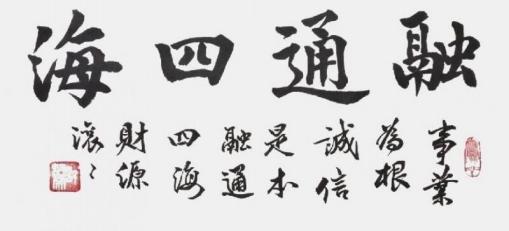 融通四海
事業
為根
誠信
是本
融通
四海
財源
滾〻